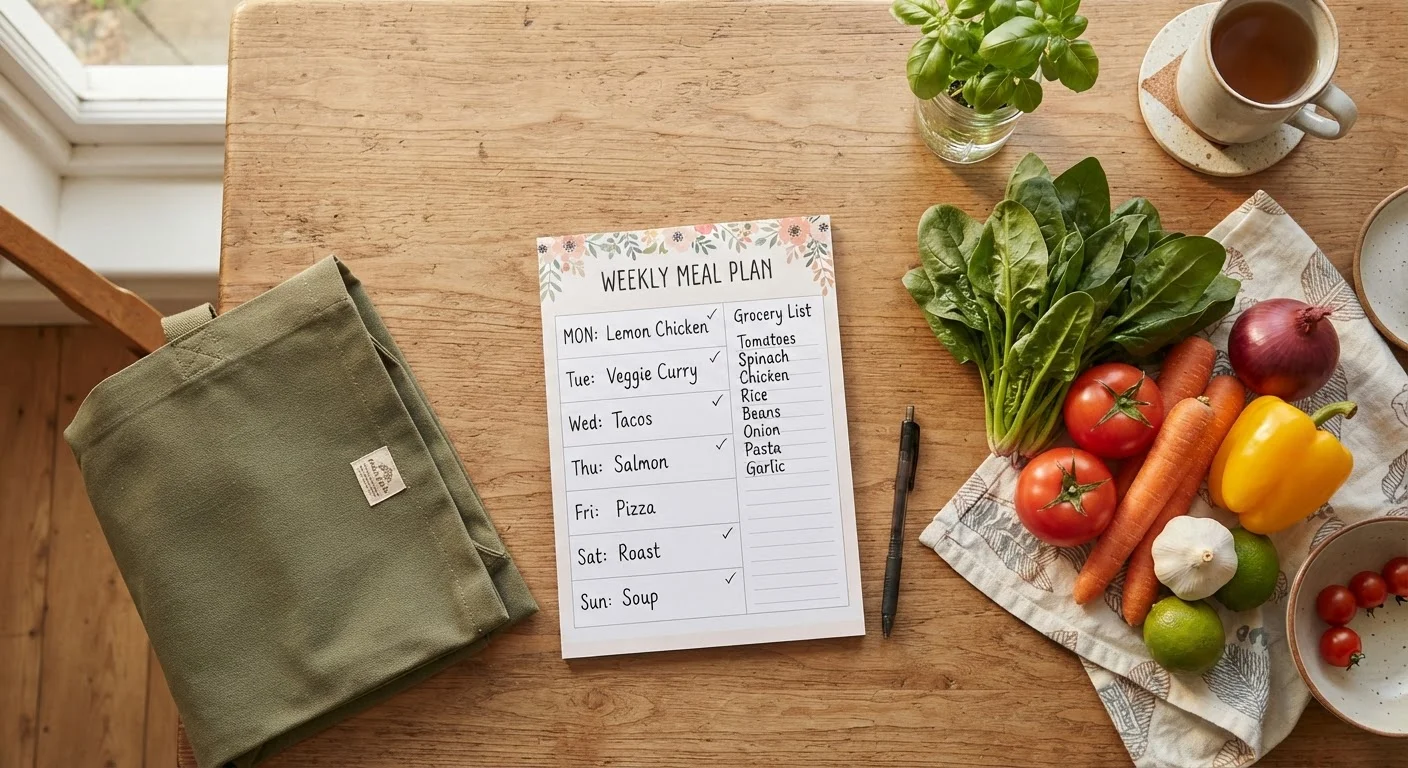 WEEKLY MEAL PLAN
MON: Lemon Chicken ✓
Tue: Veggie Curry ✓
Wed: Tacos ✓
Thu: Salmon ✓
Fri: Pizza
Sat: Roast ✓
Sun: Soup ✓
Grocery List
Tomatoes
Spinach
Chicken
Rice
Beans
Onion
Pasta
Garlic